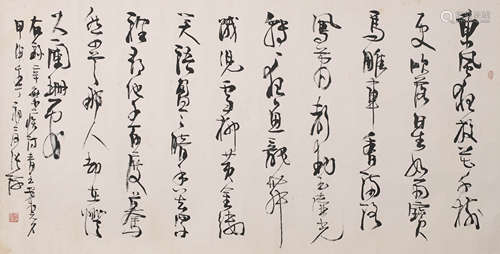 東風夜放花千樹
更吹落星如雨寶
馬雕車香滿路
鳳簫聲動玉壺光
轉一夜魚龍舞
蛾兒雪柳黃金縷
笑語盈盈暗香去眾
裡尋他千百度驀
然回首那人卻在燈
火闌珊處